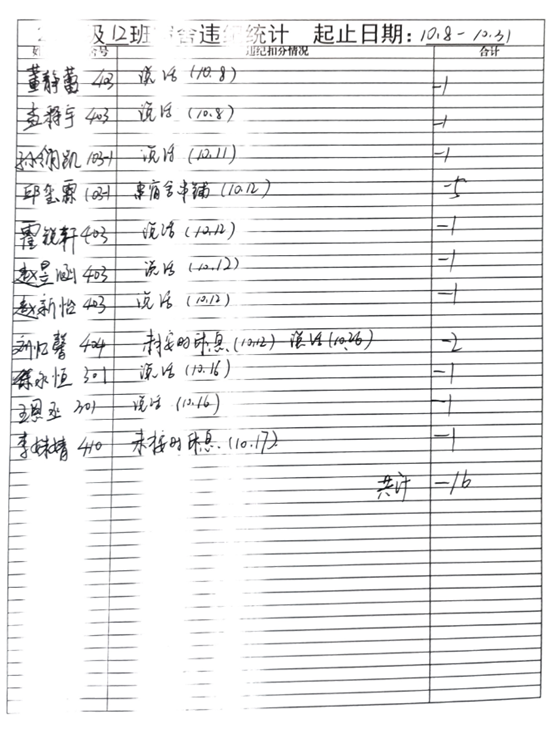 2 级12班 宿舍违纪统计 起止日期：10.8-10.31
号 违纪扣分情况 合计
董静蕾 403 说话（10.8） -1
孟得宇 403 说话（10.8） -1
凯 103-1 说话（10.11） -1
邱玺霖 103-1 串宿舍串铺（10.12） -5
霍锐轩 403 说话（10.12） -1
赵昱涵 403 说话（10.12） -1
赵新怡 403 说话（10.12） -1
刘忆馨 404 未按时休息（10.12） 说话（10.26） -2
徐永恒 301 说话（10.16） -1
王恩丞 301 说话（10.16） -1
李婧 410 未按时休息（10.17） -1
共计 -16